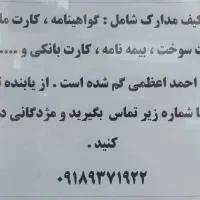 کیف مدارک شامل : گواهینامه ، کارت
سوخت ، بیمه نامه ، کارت بانکی و ....
احمد اعظمی گم شده است . از یابنده
شماره زیر تماس بگیرید و مژدگانی
کنید .
۰۹۱۸۹۳۷۱۹۲۲